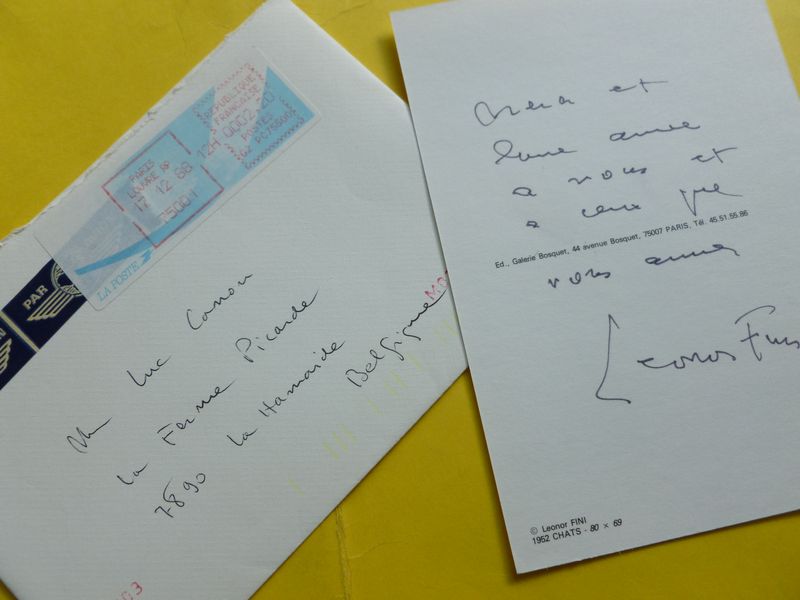 RÉPUBLIQUE
FRANÇAISE
12H 0002,20
POSTES
G2 PC75500
PARIS
LOUVRE RP
17 12 88
75001
LA POSTE
PAR
Mr Luc Canon
La Ferme Picarde
7890 La Hamaide
Belgique
Merci et
bonne année
à vous et
à ceux que
Ed., Galerie Bosquet, 44 avenue Bosquet, 75007 PARIS, Tél. 45.51.55.86
vous aimez
Leonor Fini
© Leonor FINI
1952 CHATS - 80 x 69